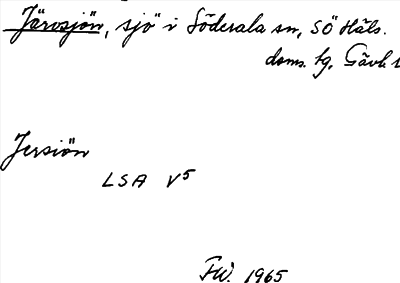 Järvsjön, sjö i Söderala sn, SÖ Häls.
doms. hg, Gävl. l
Jersiön
LSA V5
FW. 1965